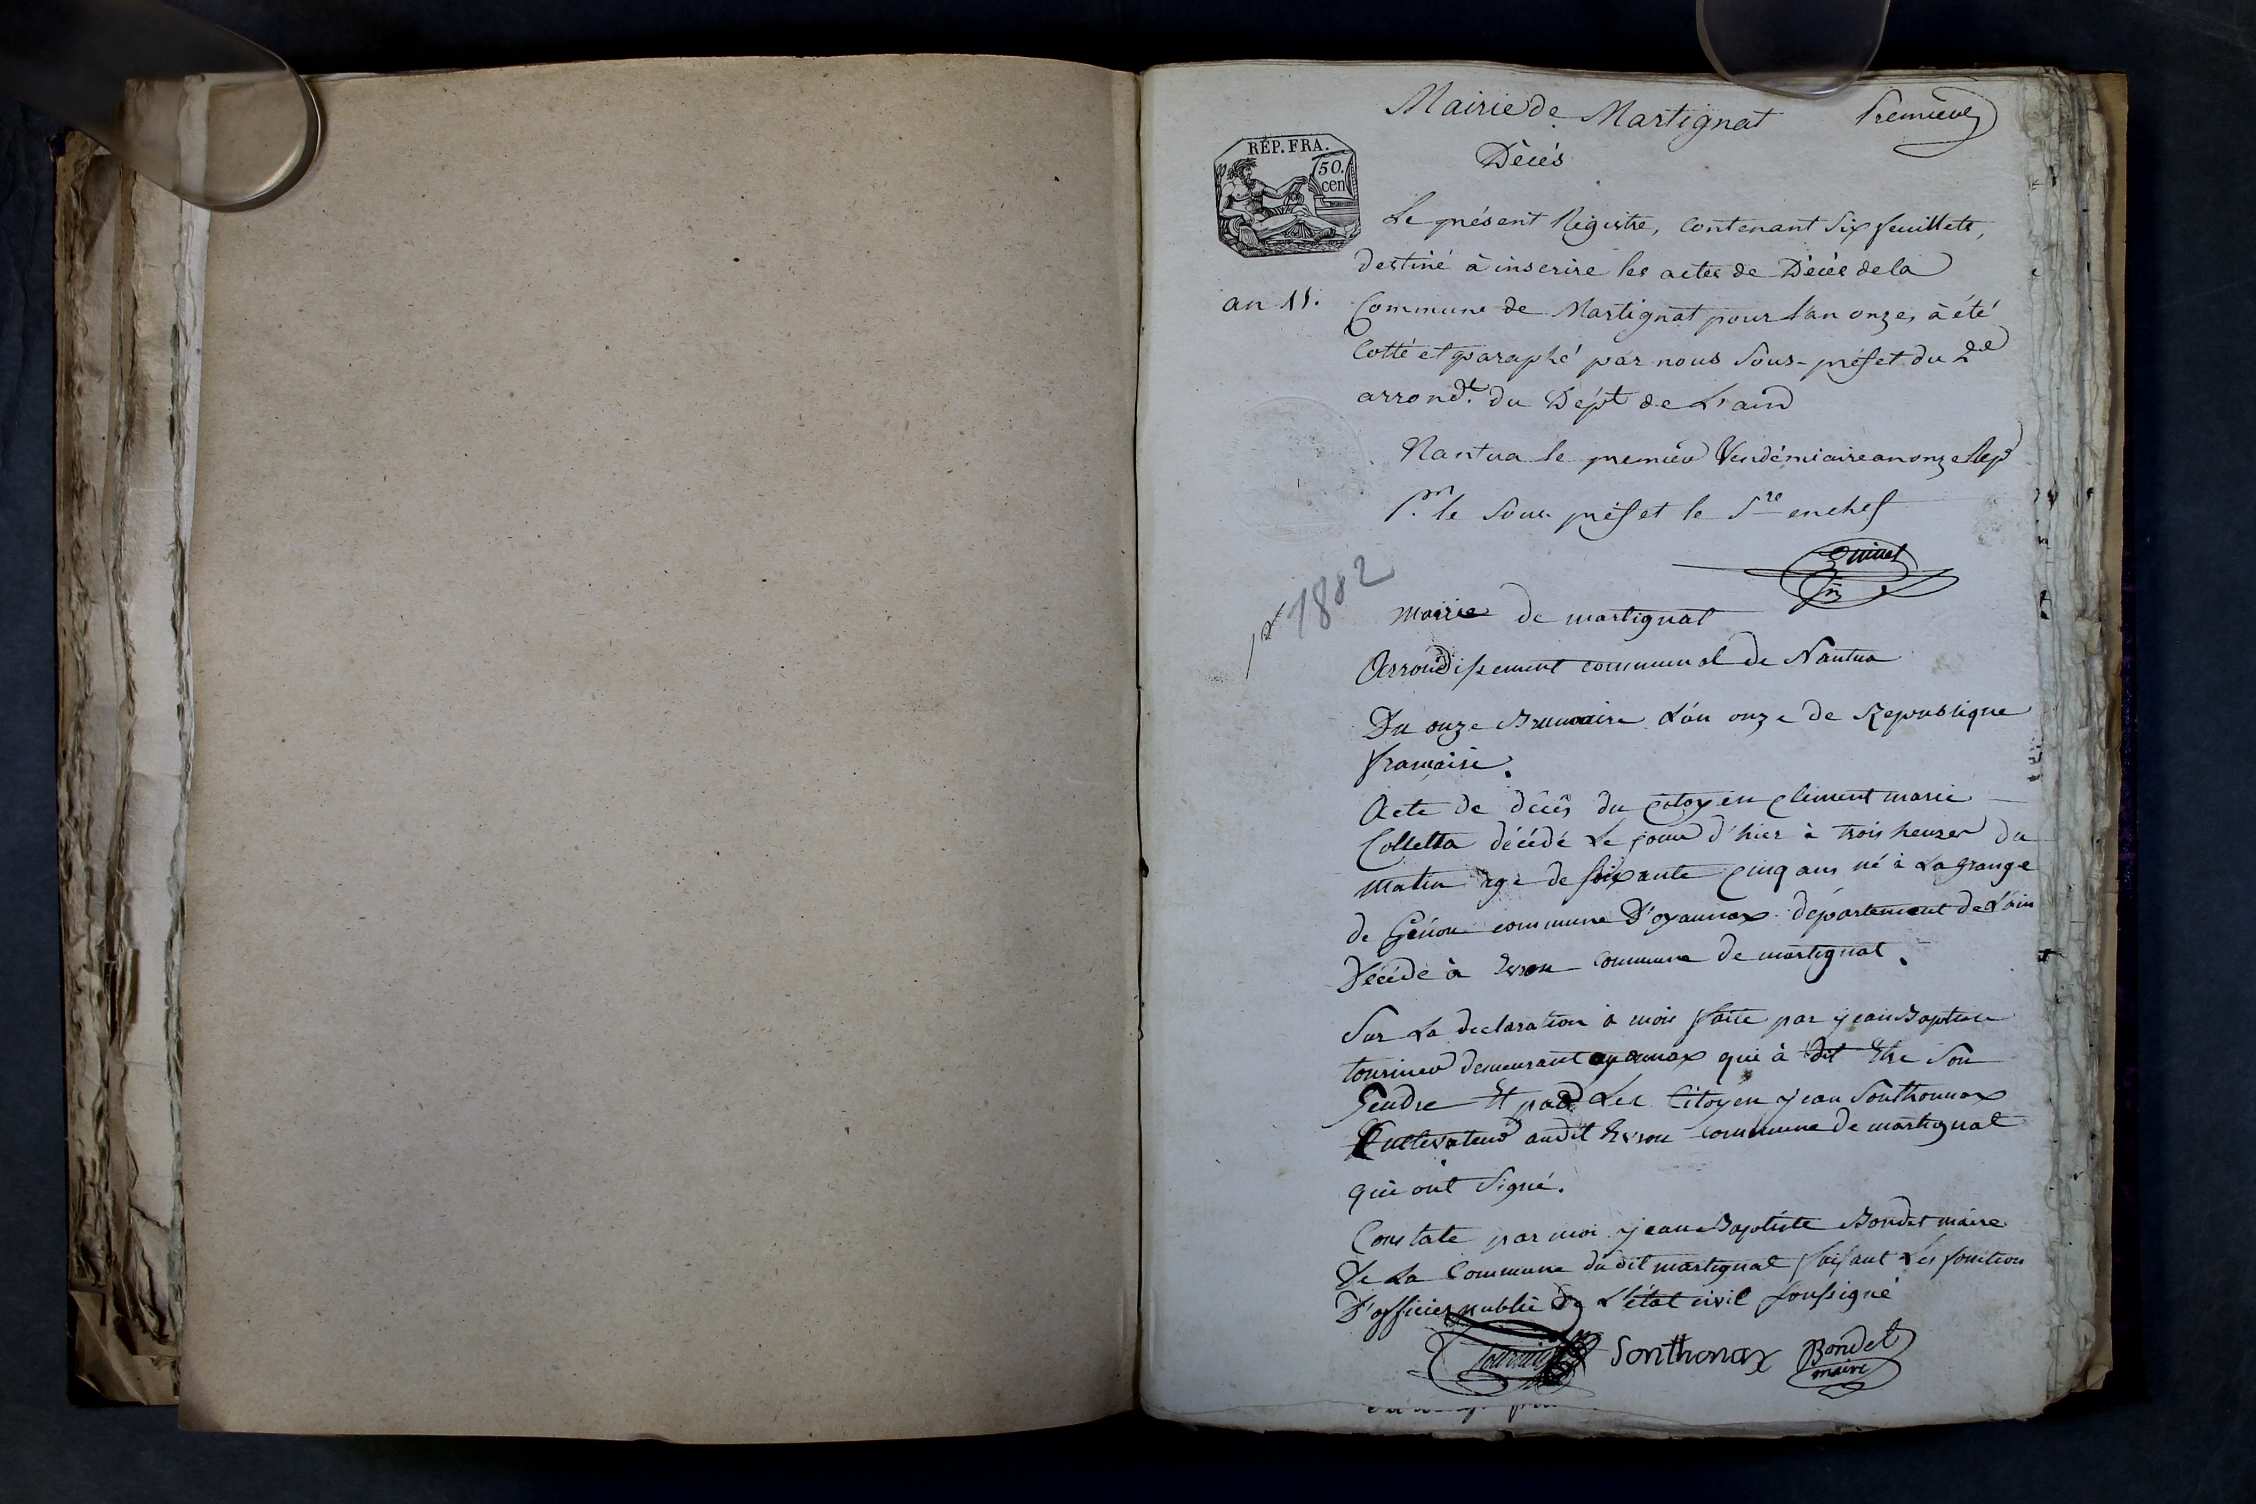 Mairie de Martignat Premiere
Décés
RÉP. FRA.
50.
cen
Le présent Régistre, contenant Six feuillets,
destiné à inscrire les actes de Décés de la
an 11. Commune de Martignat pour l'an onze, à été
Cotté et paraphé par nous Sous-préfet du 2e
arrondt. du Dépt de L'ain
Nantua le premier Vendémiaire an onze Rep
Pr. le Sous préfet le Sre en chef
1802
Mairie de martignat
Arrondissement communal de Nantua
Du onze Brumaire L'an onze de Republique
française.
Acte de décès du Citoyen Clément marie
Colletta décédé Le jour d'hier à trois heures du
matin age de soixante Cinq ans né à La grange
de commune D'oyannax département de L'ain
Décédé à Evron Commune de martignat.
Sur La declaration à moi faite par jean Baptiste
tournier demeurant oyannax qui à dit Etre Son
Gendre Et par Les Citoyen jean Sonthonnax
Cultivateur audit Evron commune de martignat
qui ont Signé.
Constate par moi jean Baptiste Bondet maire
De La Commune du dit martignat faisant Les fonction
D'officier public De L'état civil soussigné
Tournier Sonthonax Bondet
maire